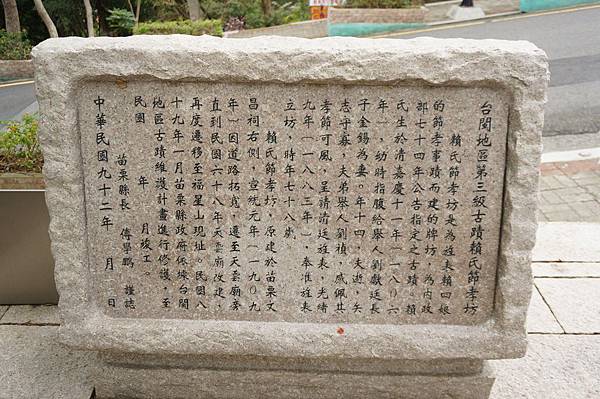 台閩地區第三級古蹟賴氏節孝坊
賴氏節孝坊是為旌表賴四娘
的節孝事蹟而建的牌坊，為內政
部七十四年公告指定之古蹟。賴
氏生於清嘉慶十一年（一八〇六
年），幼時指腹給舉人劉獻廷長
子金錫為妻。年十四，夫逝，矢
志守寡，夫弟舉人劉禎，感佩其
孝節可風，呈請清廷旌表，光緒
九年（一八八三年），奉准旌表
立坊，時年七十八歲。
賴氏節孝坊，原建於苗栗文
昌祠右側，宣統元年（一九〇九
年）因道路拓寬，遷至天雲廟旁
直到民國六十八年天雲廟改建，
再度遷移至福星山現址。民國八
十九年一月苗栗縣政府依據台閩
地區古蹟維護計畫進行修護，至
民國　年　月竣工。
苗栗縣長　傅學鵬　謹誌
中華民國九十二年　月　日